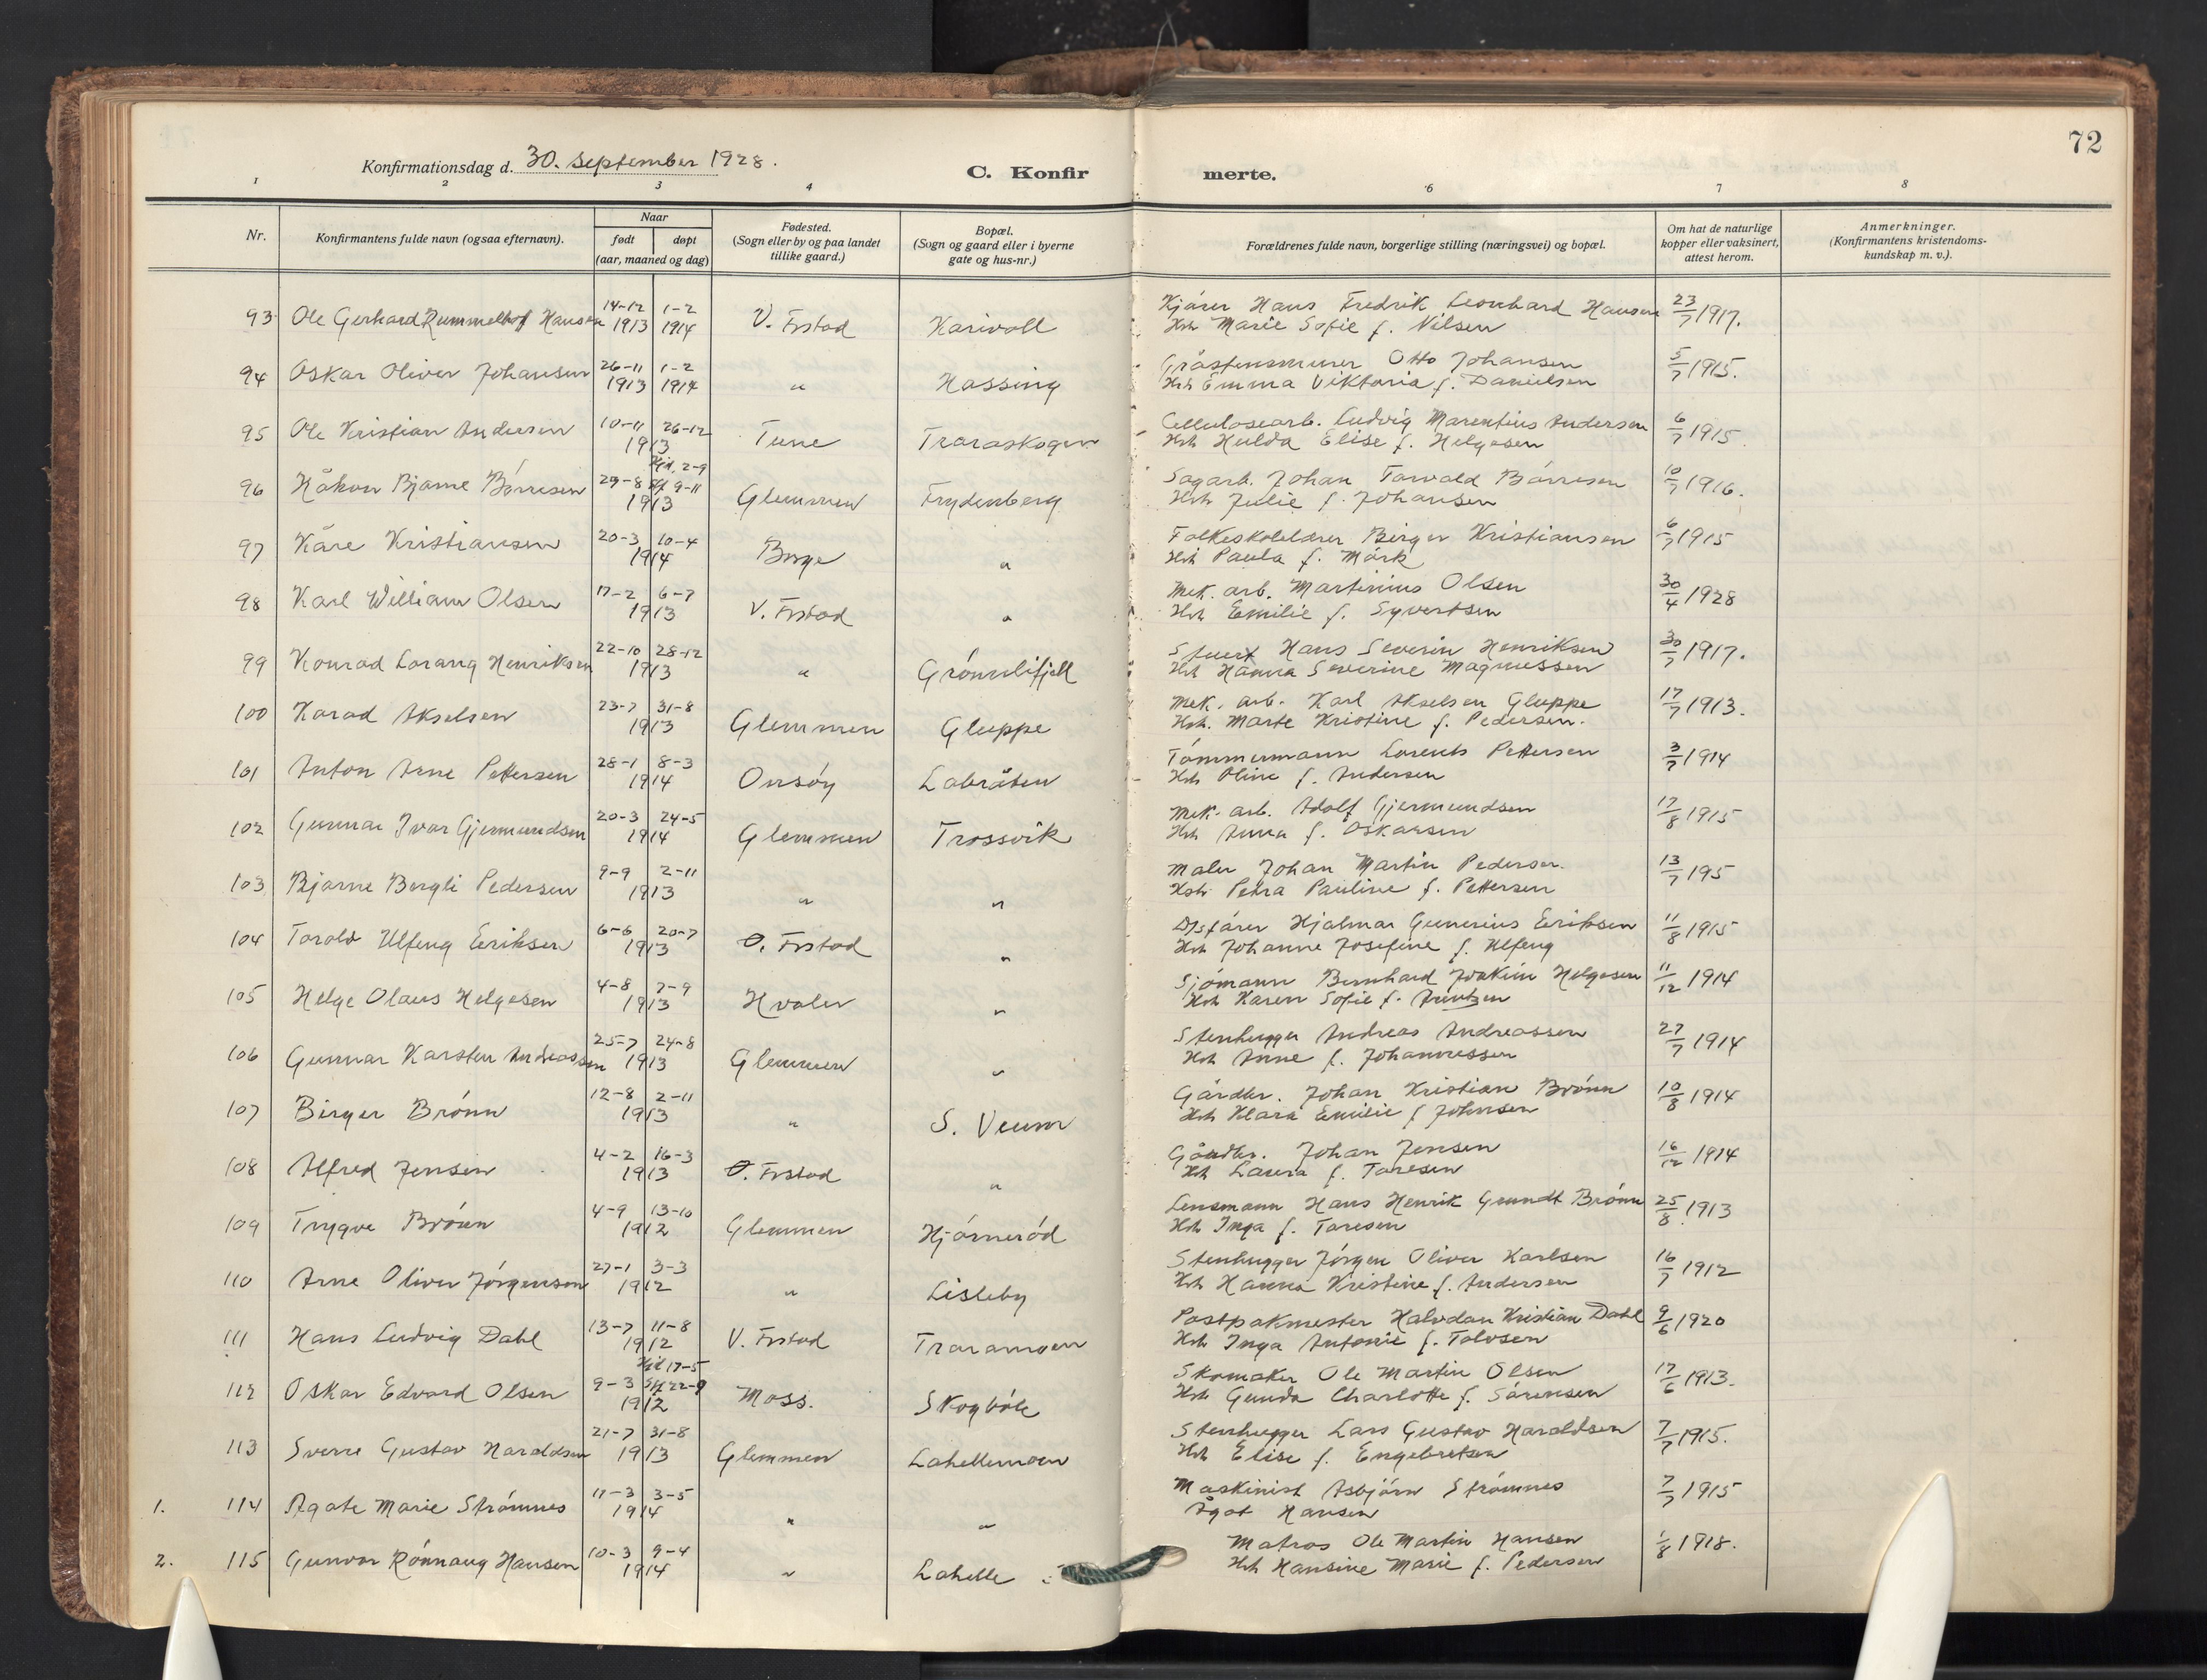 72
Konfirmationsdag d. 30. september 1928.
C. Konfir merte.
1 2 3 4 6 7 8
Nr.
Konfirmantens fulde navn (ogsaa efternavn).
Naar
født døpt
(aar, maaned og dag)
Fødested.
(Sogn eller by og paa landet
tillike gaard.)
Bopæl.
(Sogn og gaard eller i byerne
gate og hus-nr.)
Forældrenes fulde navn, borgerlige stilling (næringsvei) og bopæl.
Om hat de naturlige
kopper eller vaksinert,
attest herom.
Anmerkninger.
(Konfirmantens kristendoms-
kundskap m. v.).
93 Ole Gerhard Rummelhof Hansen 14-12 1913 1-2 1914 V. Frstad Karivoll Kjörer Hans Fredrik Leonhard Hansen 23/7 1917.
Hst Marie Sofie f. Nilsen
94 Oskar Oliver Johansen 26-11 1913 1-2 1914 " Hassing Gråstensmurer Otto Johansen 5/7 1915.
Hst Emma Viktoria f. Danielsen
95 Ole Kristian Andersen 10-11 26-12 1913 Tune Traraskogen Cellulosearb. Ludvig Marentius Andersen 6/7 1915
Hst Hulda Elise f. Helgesen
96 Håkon Bjarne Börresen 29-8 Hjd. 2-9 Stf 9-11 1913 Glemmen Frydenberg Sagarb. Johan Torvald Börresen 10/7 1916.
Hst Julie f. Johansen
97 Kåre Kristiansen 20-3 10-4 1914 Borge " Folkeskolelærer Birger Kristiansen 6/7 1915
Hst Paula f. Mörk
98 Karl William Olsen 17-2 6-7 1913 V. Frstad " Mek. arb. Martinius Olsen 30/4 1928
Hst Emilie f. Syvertsen
99 Konrad Lorang Henriksen 22-10 28-12 1913 " Grönnlifjell Stuert Hans Severin Henriksen 30/7 1917.
Hst Hanna Severine Magnussen
100 Harad Akselsen 23-7 31-8 1913 Glemmen Gluppe Mek. arb. Karl Akselsen Gluppe 17/7 1913.
Hst. Marte Kristine f. Pedersen.
101 Anton Arne Pettersen 28-1 8-3 1914 Onsöy Labråten Tömmermann Lorents Pettersen 3/7 1914
Hst Oline f. Andersen
102 Gunnar Ivar Gjermundsen 20-3 24-5 1914 Glemmen Trossvik Mek. arb. Adolf Gjermundsen 17/8 1915
Hst Anna f. Oskarsen
103 Bjarne Bergli Pedersen 9-9 2-11 1913 " " Maler Johan Martin Pedersen. 13/7 195
Hst. Petra Pauline f. Pettersen
104 Torolv Ulfeng Eriksen 6-6 20-7 1913 O. Frstad " Hjalmar Gunerius Eriksen 11/8 1915
Hst Johanne Josefine f. Ulfeng
105 Helge Olaus Helgesen 4-8 7-9 1913 Hvaler " Sjömann Bernhard Joakim Helgesen 11/12 1914
Hst Karen Sofie f. Arntzen
106 Gunnar Karsten Andreassen 25-7 24-8 1913 Glemmen " Stenhugger Andreas Andreassen 27/7 1914
Hst Anne f. Johannessen
107 Birger Brönn 12-8 2-11 1913 " S. Veum Gårdbr. Johan Kristian Brönn 10/8 1914
Hst Klara Emilie f Johnsen
108 Alfred Jensen 4-2 16-3 1913 O. Frstad " Gårdbr. Johan Jensen 16/12 1914
Hst Laura f. Toresen
109 Trygve Brönn 4-9 13-10 1912 Glemmen Hjörneröd Lensmann Hans Henrik Grundt Brönn 25/8 1913
Hst Inga f. Toresen
110 Arne Oliver Jörgensen 27-1 3-3 1912 " Lisleby Stenhugger Jörgen Oliver Karlsen 16/7 1912
Hst Hanna Kristine f. Andersen
111 Hans Ludvig Dahl 13-7 11-8 1912 V. Frstad Traramoen Postpakmester Halvdan Kristian Dahl 9/6 1920
Hst Inga Antonie f. Tolvsen
112 Oskar Edvard Olsen 9-3 Hjd 17-5 Stf 22-9 1912 Moss. Skogböle Skomaker Ole Martin Olsen 17/6 1913.
Hst Gunda Charlotte f. Sörensen
113 Sverre Gustav Haraldsen 21-7 31-8 1913 Glemmen Lahellemoen Stenhugger Lars Gustav Haraldsen 7/7 1915.
Hst Elise f. Engebretsen
1. 114 Agate Marie Strömnes 11-3 3-5 1914 " " Maskinist Asbjörn Strömnes 7/7 1915
Ågot Hansen
2. 115 Gunvor Rönnaug Hansen 10-3 9-4 1914 " Lahelle Matros Ole Martin Hansen 1/8 1918.
Hst Hansine Marie f. Pedersen